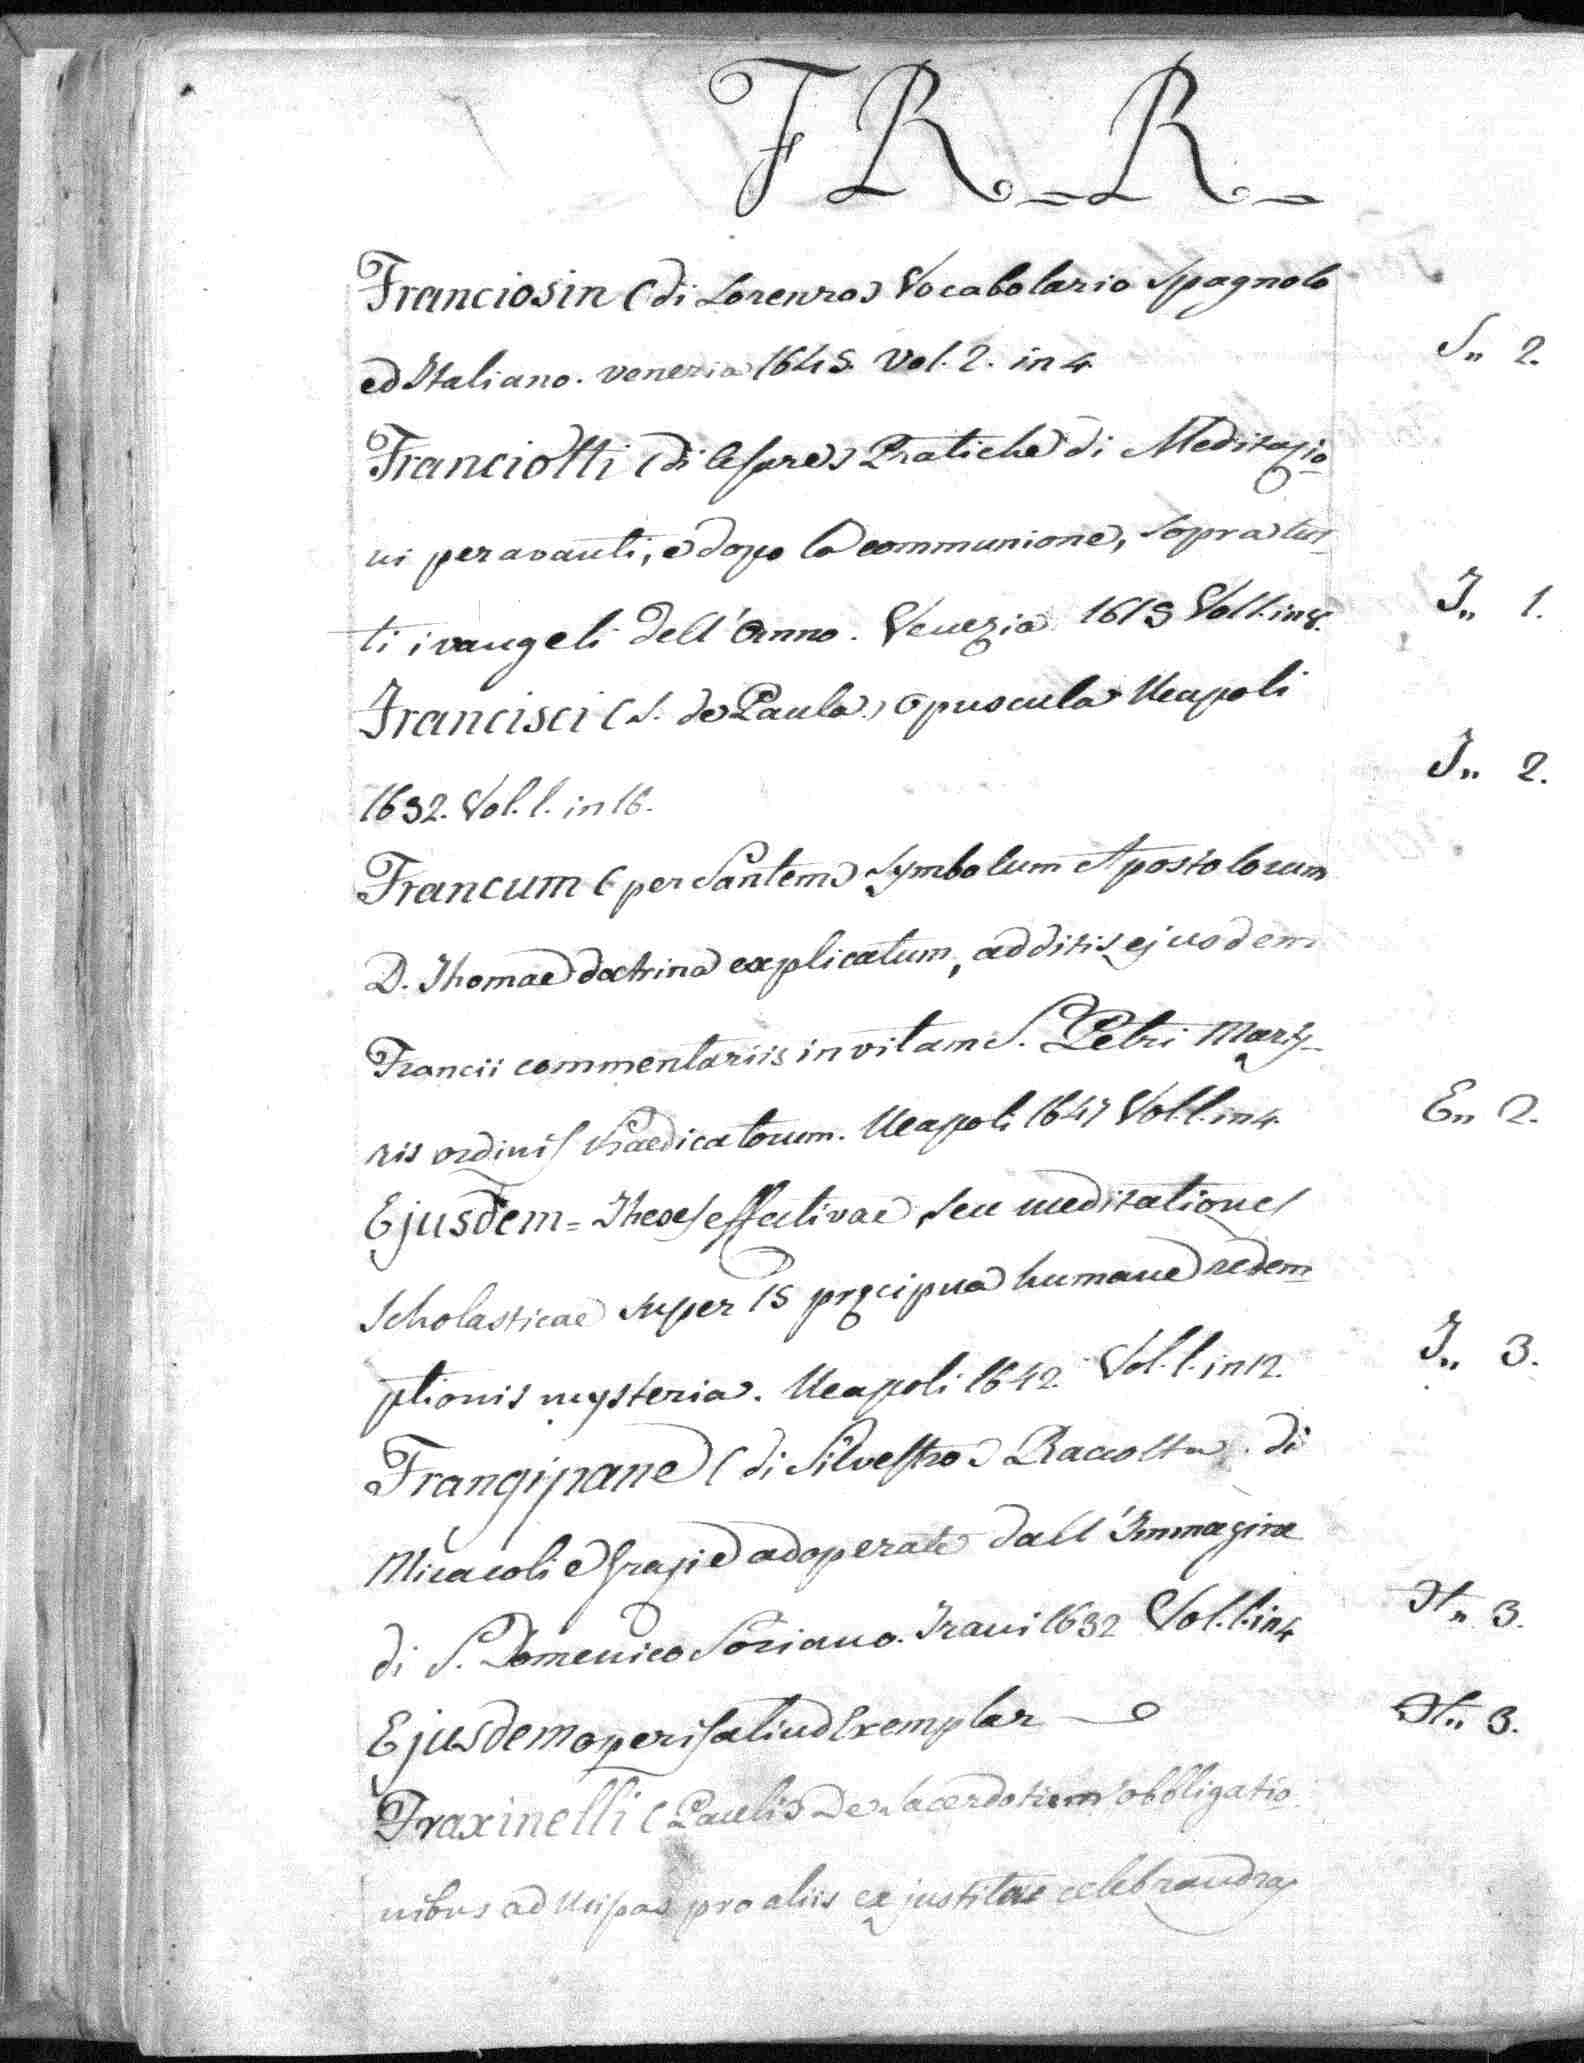 F R - R -
Franciosin (di Lorenzo) Vocabolario Spagnolo
ed Italiano. Venezia 1645. Vol. 2. in 4. S,, 2.
Franciotti (di Cesare) Pratiche di Meditazio-
ni per avanti, e dopo la communione, sopra tut-
ti i vangeli dell'Anno. Venezia 1615 Vol. 1. in 8. I,, 1.
Francisci (S. de Paula.) Opuscula Neapoli
1632. Vol. 1. in 16. I,, 2.
Francum (per Santem) Symbolum Apostolorum
D. Thomae doctrina explicatum, additis ejusdem
Francii commentariis in vitam S. Petri Marty-
ris ordinis Praedicatorum. Neapoli 1647 Vol. 1. in 4. E,, 2.
Ejusdem = Theses effectivae, seu meditationes
Scholasticae super 15 precipua humane redem-
ptionis mysteria. Neapoli 1642. Vol. 1. in 12. I,, 3.
Frangipane (di Silvestro) Raccolta di
Miracoli e Grazie adoperate dall'Immagine
di S. Domenico Soriano. Trani 1632 Vol. 1. in 4 H,, 3.
Ejusdem operis aliud Exemplar H,, 3.
Fraxinelli (Pauli) De Sacerdotum obbligatio-
nibus ad Missas pro aliis ex justitae celebrandas